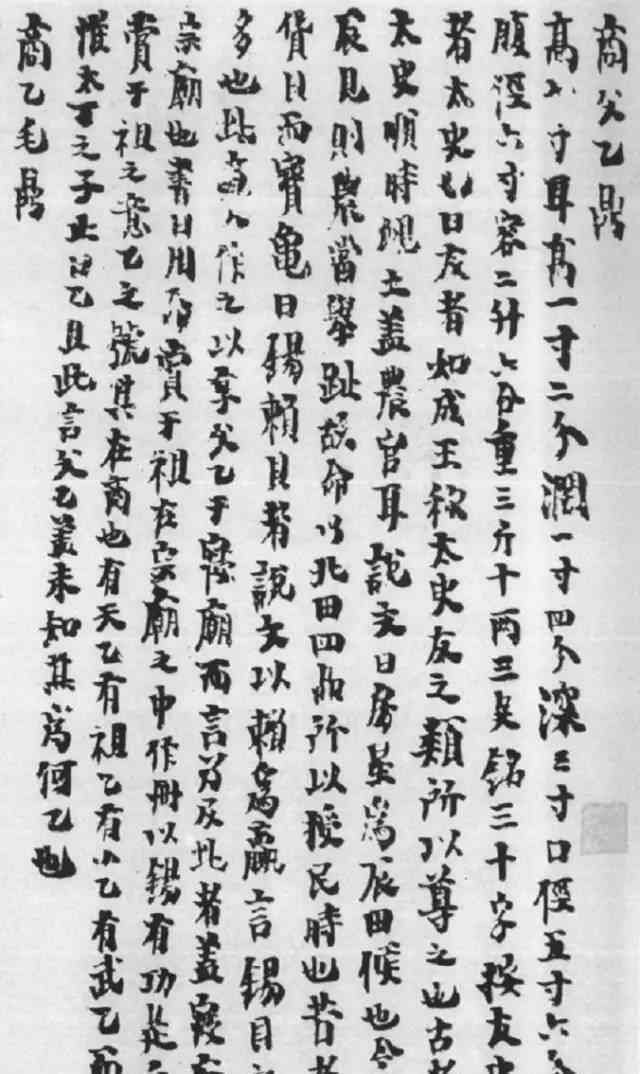 商父乙鼎
高六寸耳高一寸二分濶一寸四分深三寸口徑五寸六分
腹徑六寸容二升六合重三斤十兩三足銘三十字按友史
者太史也曰友者如成王稱太史友之類所以尊之也古者
太史順時覛土盖農官耳說文曰房星為辰田候也今
辰見則農當舉趾故命以北田四品所以授民時也昔者
貨貝而寶龜曰錫賴貝者說文以賴為贏言錫貝之
多也此人作之以享父乙于寢廟而言及此者盖寢
宗廟也書曰用命賞于祖在宗廟之中作冊以錫有功是
賞于祖之意乙之號其在商也有天乙有祖乙有小乙有武乙而
惟太丁之子止曰乙且此言父乙盖未知其為何乙也
商乙毛鼎